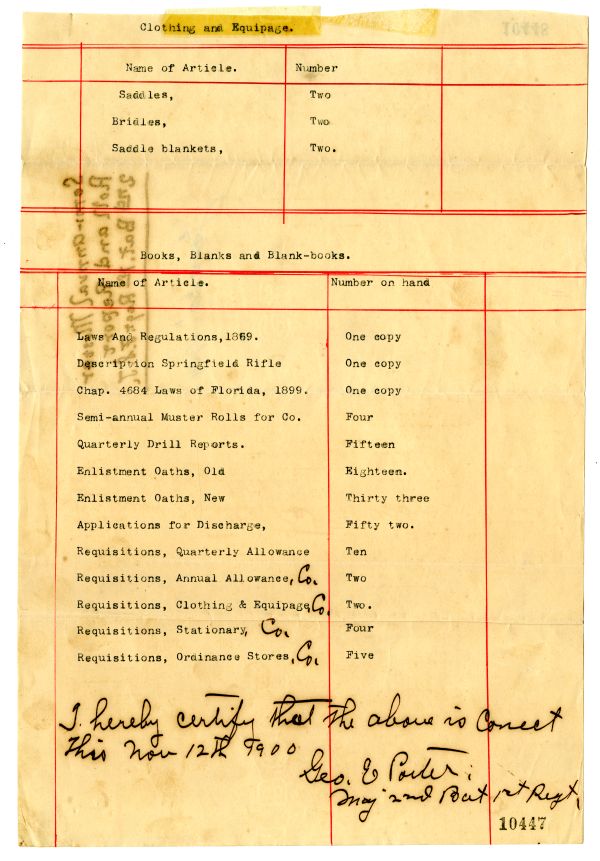 Clothing and Equipage.
Name of Article. Number
Saddles, Two
Bridles, Two
Saddle blankets, Two.
Books, Blanks and Blank-books.
Name of Article. Number on hand
Laws And Regulations,1869. One copy
Description Springfield Rifle One copy
Chap. 4684 Laws of Florida, 1899. One copy
Semi-annual Muster Rolls for Co. Four
Quarterly Drill Reports. Fifteen
Enlistment Oaths, Old Eighteen.
Enlistment Oaths, New Thirty three
Applications for Discharge, Fifty two.
Requisitions, Quarterly Allowance Ten
Requisitions, Annual Allowance, Co. Two
Requisitions, Clothing & Equipage, Co. Two.
Requisitions, Stationary, Co. Four
Requisitions, Ordinance Stores, Co. Five
I hereby certify that the above is Correct
this Nov 12th 1900
Geo. E Porter.
Maj 2nd Bat 1st Regt.
10447